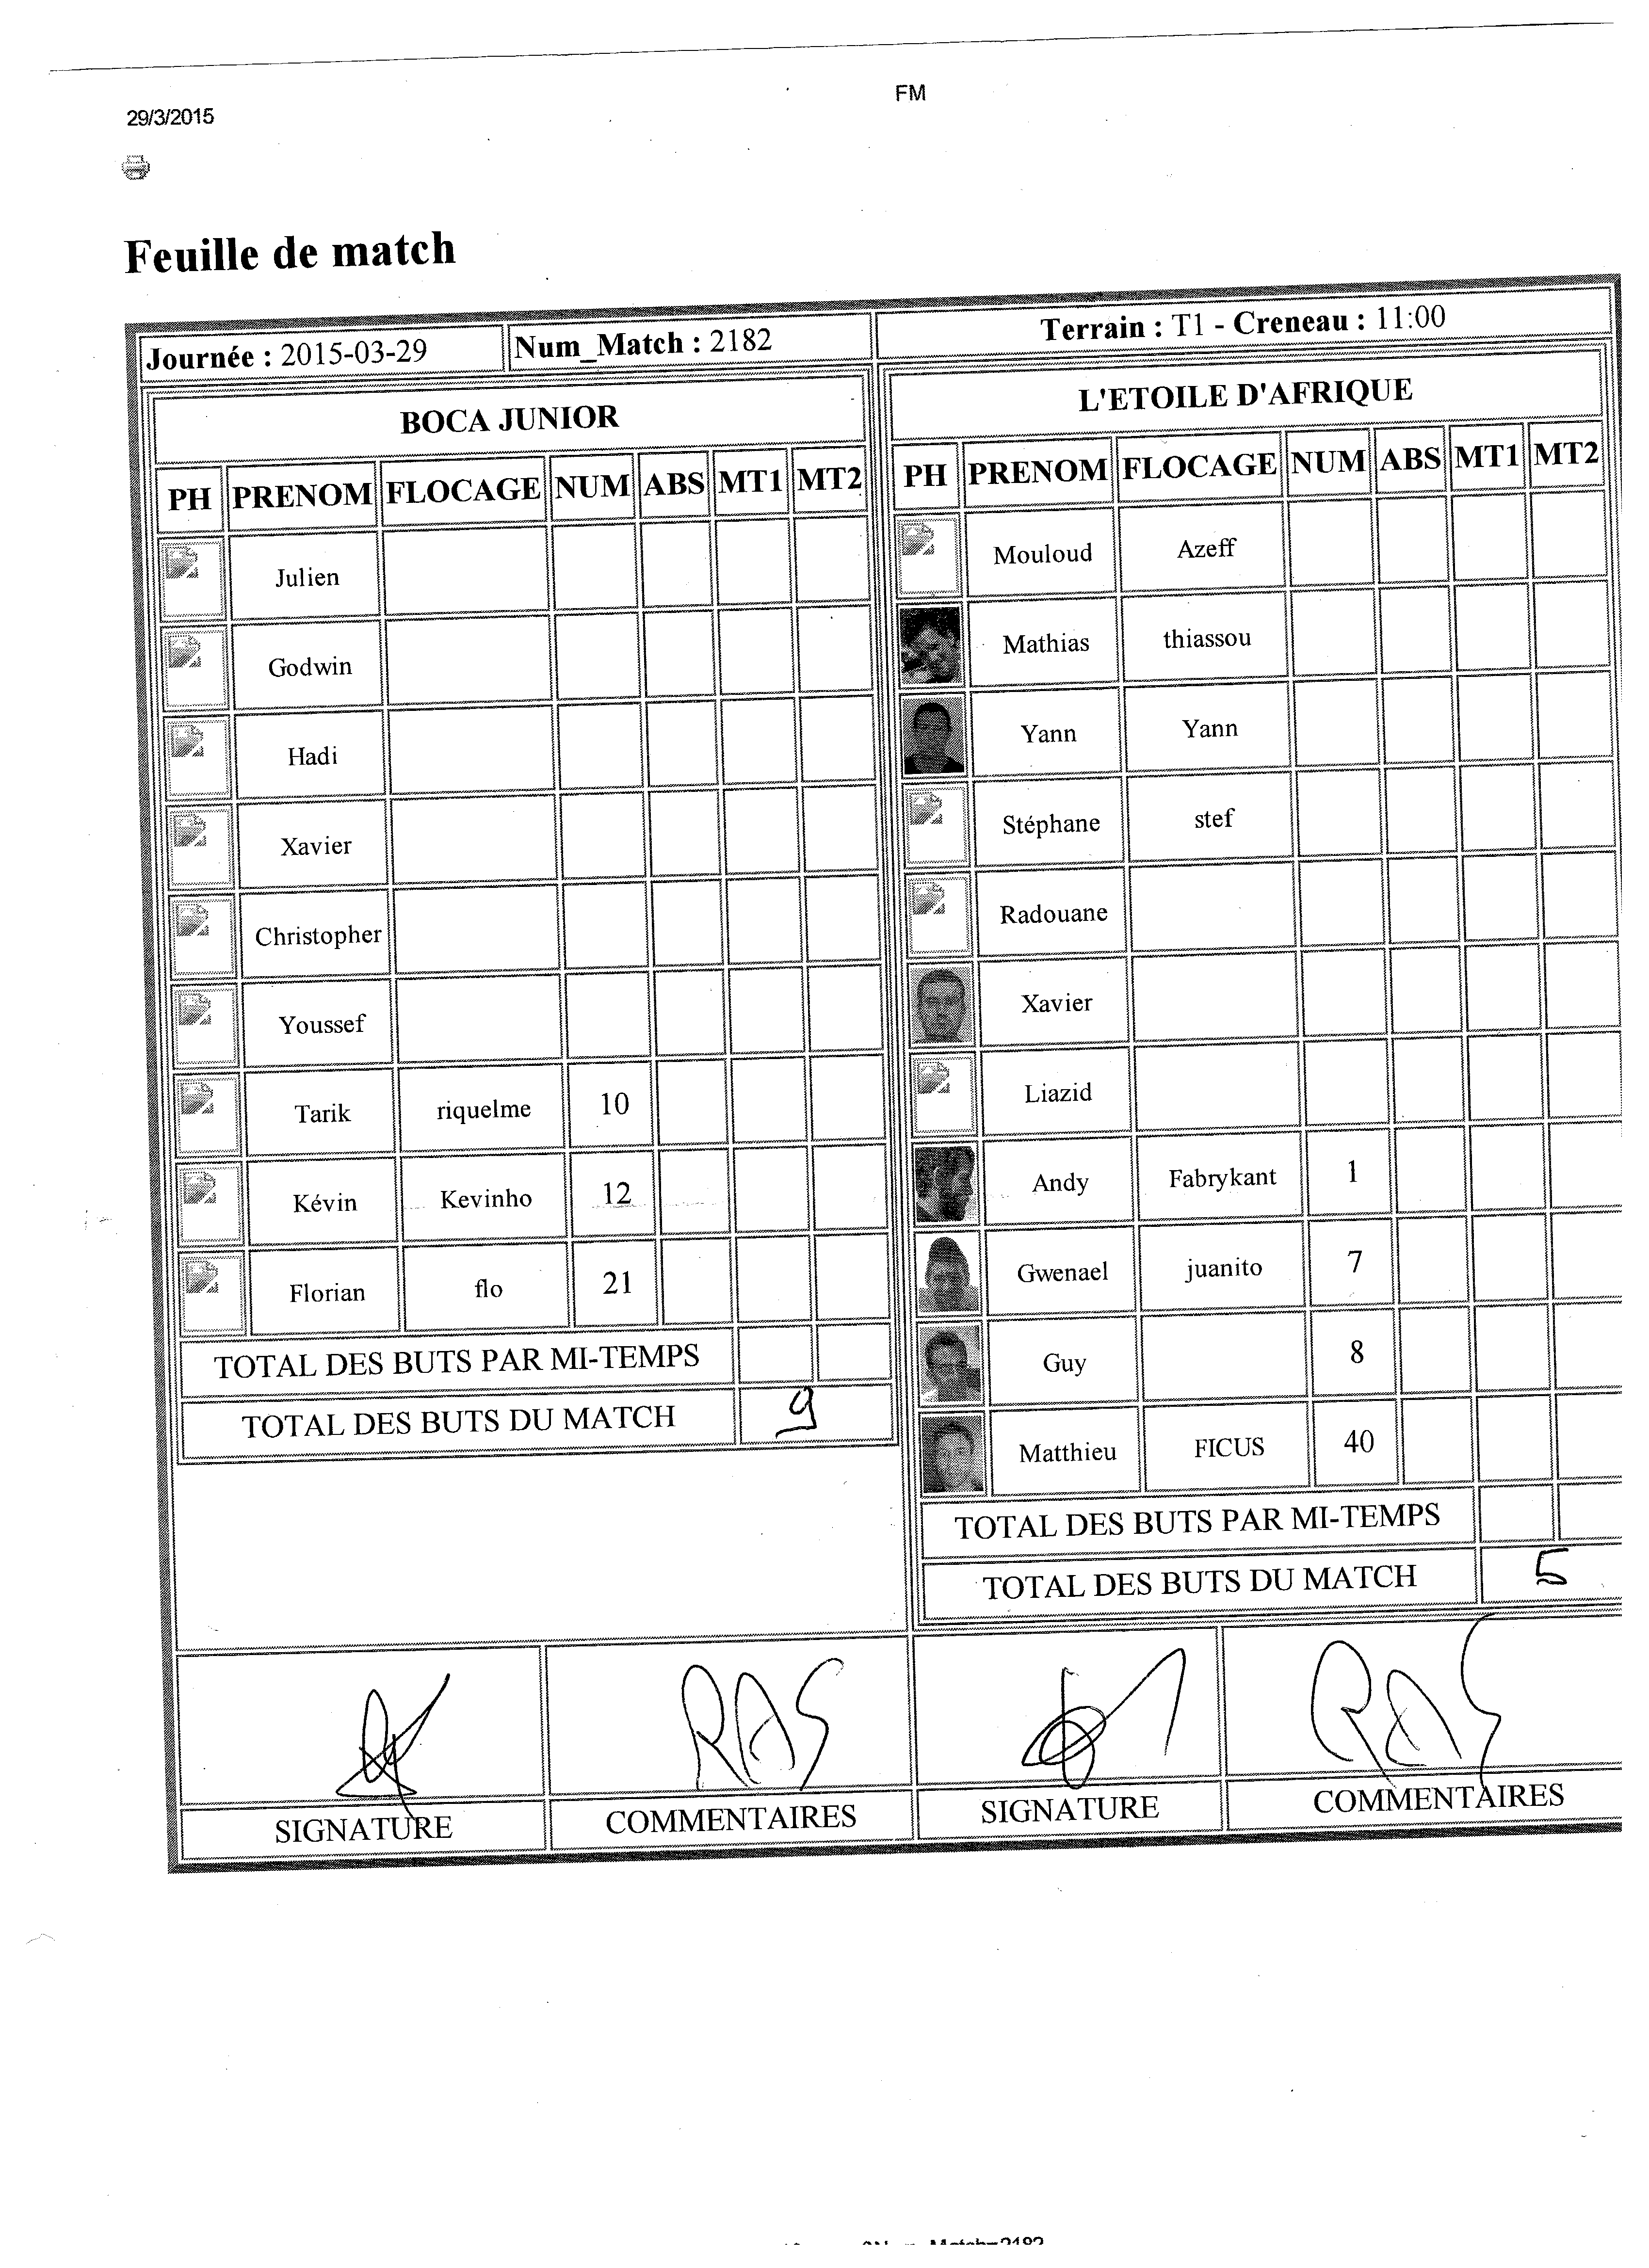 FM
29/3/2015
Feuille de match
Journée : 2015-03-29 Num_Match : 2182 Terrain : T1 - Creneau : 11:00
BOCA JUNIOR
PH PRENOM FLOCAGE NUM ABS MT1 MT2
Julien
Godwin
Hadi
Xavier
Christopher
Youssef
Tarik riquelme 10
Kévin Kevinho 12
Florian flo 21
TOTAL DES BUTS PAR MI-TEMPS
TOTAL DES BUTS DU MATCH 9
L'ETOILE D'AFRIQUE
PH PRENOM FLOCAGE NUM ABS MT1 MT2
Mouloud Azeff
Mathias thiassou
Yann Yann
Stéphane stef
Radouane
Xavier
Liazid
Andy Fabrykant 1
Gwenael juanito 7
Guy 8
Matthieu FICUS 40
TOTAL DES BUTS PAR MI-TEMPS
TOTAL DES BUTS DU MATCH 5
RAS RAS
SIGNATURE COMMENTAIRES SIGNATURE COMMENTAIRES
Match=2182